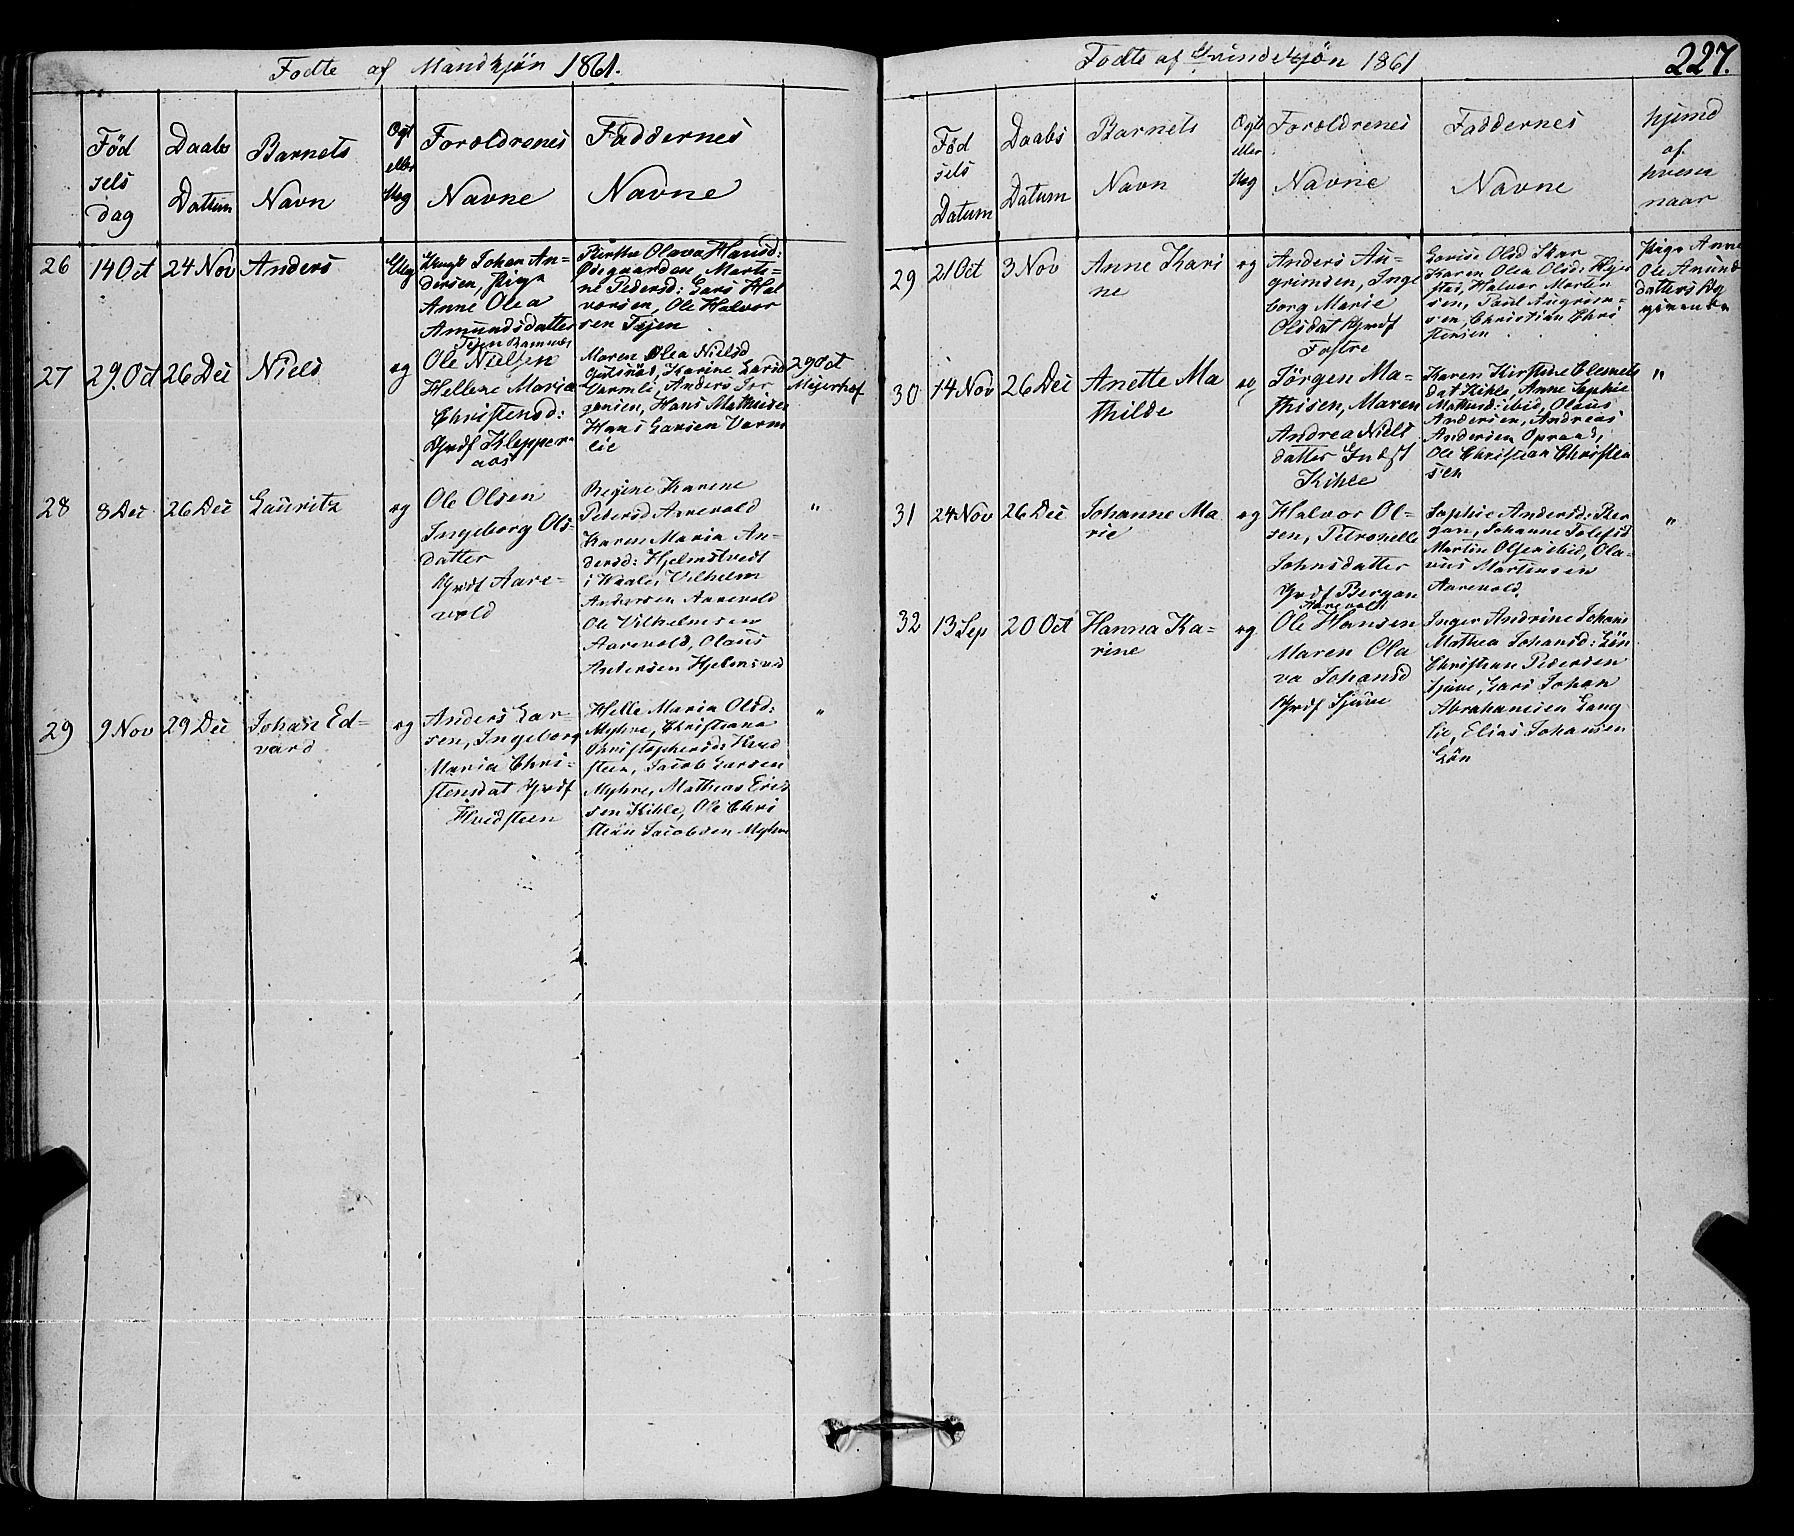 Fodte af Mandkjön 1861.
Fød
sels
dag
Daabs
Dattum
Barnets
Navn
Ægt
eller
Uæg
Forældrenes
Navne
Faddernes
Navne
26
14 Oct
24 Nov
Anders
Uæg
Ungk Johan An-
dersen, Pige
Anne Olea
Amundsdatter
Tejen Bamnæs
Birthe Olava Hansd:
Ødegaarden, Marti-
ne Pedersd: Lars Hal
vorsen, Ole Halvor
sen Tejen
27
29. Oct
26 Dec
Niels
æg
Ole Nielsen
Hellene Maria
Christensd:
Grdf Klepper-
aas
Maren Olea Nielsd
Karine Larsd
Varmli, Anders Jør
gensen, Hans Mathisen
Hans Larsen Varm
lie
29 Oct
Mejerhof
28
8 Dec
26 Dec
Lauritz
æg
Ole Olsen
Ingeborg Ols-
datter
Grdf Aare-
vold
Regine Karene
Petersd Aarevold
Karen Maria An-
dersd: Hjelmtvedt
i Waale, Vilhelm
Andersen Aarevold
Ole Vilhelmsen
Aarevold, Olaus
Andersen Hjelmtved
"
29
9 Nov
29 Dec
Johan Ed-
vard
æg
Anders Lar-
sen, Ingeborg
Maria Chri-
stensdat Grdf
Hvidsteen
Helle Maria Olsd:
Myhre, Christiana
Christophersd: Hvid
steen, Jacob Larsen
Myhre, Mathias Erik
sen Kihle, Ole Chri
stian Jacobsen Myhre
"
Fodte af Qvindekjön 1861
227.
Fød
sels
Datum
Daabs
Datum
Barnets
Navn
Ægte
eller
Uæg
Forældrenes
Navne
Faddernes
Navne
hjemd
af
hvem
naar
29
21 Oct
3 Nov
Anne Kari
ne
æg
Anders An-
grimsen, Inge
borg Marie
Olsdat Grdf
Fostre
Larise Olsd Skar
Karen Olea Olsd:
Halvor Martin
sen, Paul Angrim-
sen, Christian Chri
stensen
Pige Anne
Ole Amund
datters Ag
givende
30
14 Nov
26 Dec
Anette Ma
thilde
æg
Jörgen Ma-
thisen, Maren
Andrea Niels
datter Indst
Kihle
Karen Kirstine Clemets
dat Kihle, Anne Sophie
Mathisd: ibid, Olaus
Andersen, Andreas
Andersen Opsand,
Ole Christian Christen
sen
"
31
24 Nov
26 Dec
Johanne Ma
rie
æg
Halvor Ol-
sen, Petronelle
Johnsdatter
Grdf Bergan
Aarevold
Sophie Andersd: Ber
gan, Johanne Tolefsd
Martin Olsen ibid, Ola-
vus Martinsen
Aarevold.
"
32
13 Sep
20 Oct
Hanna Ka-
rine
æg
Ole Hansen
Maren Ola
va Johansd
Grdf Sjüve
Inger Andrine Johans
Mathea Johansd: Løn
Christian Pedersen
Sjüve, Lars Johan
Abrahamsen Lang
lie, Elias Johansen
Løn